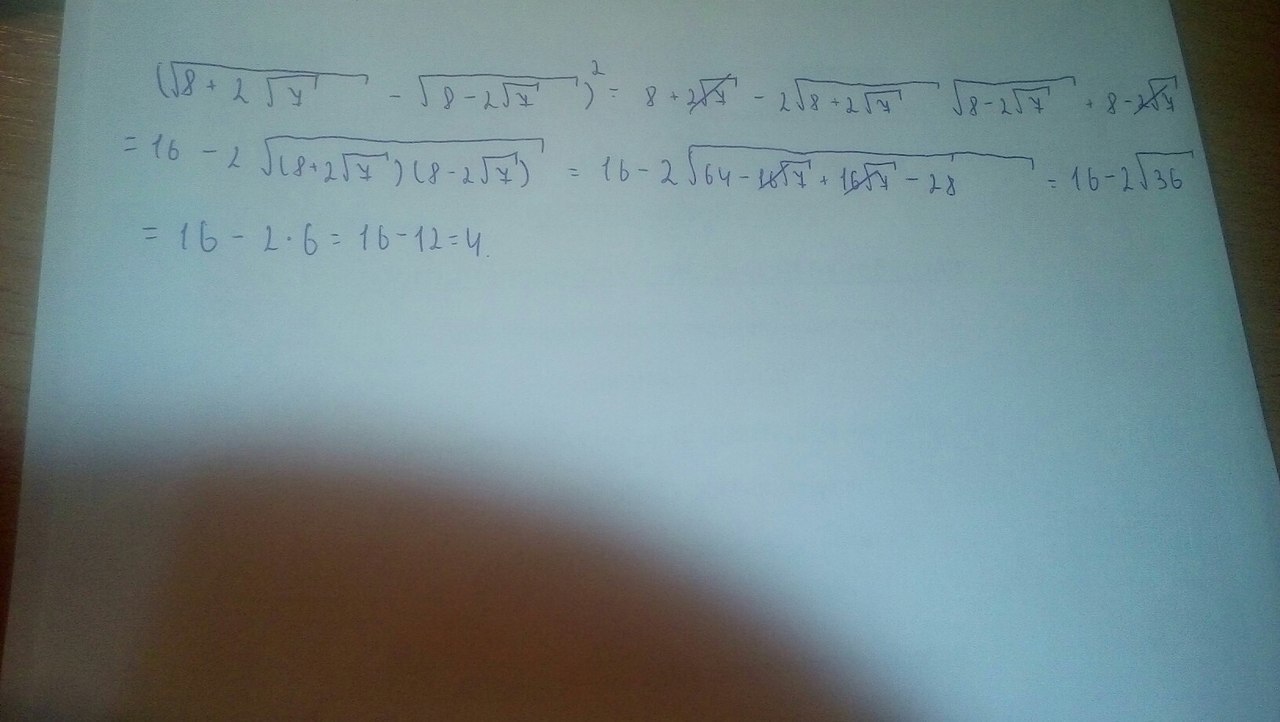 (√(8 + 2√7) - √(8 - 2√7))² = 8 + 2√7 - 2√(8 + 2√7) √(8 - 2√7) + 8 - 2√7
= 16 - 2√((8 + 2√7)(8 - 2√7)) = 16 - 2√(64 - 16√7 + 16√7 - 28) = 16 - 2√36
= 16 - 2·6 = 16 - 12 = 4.